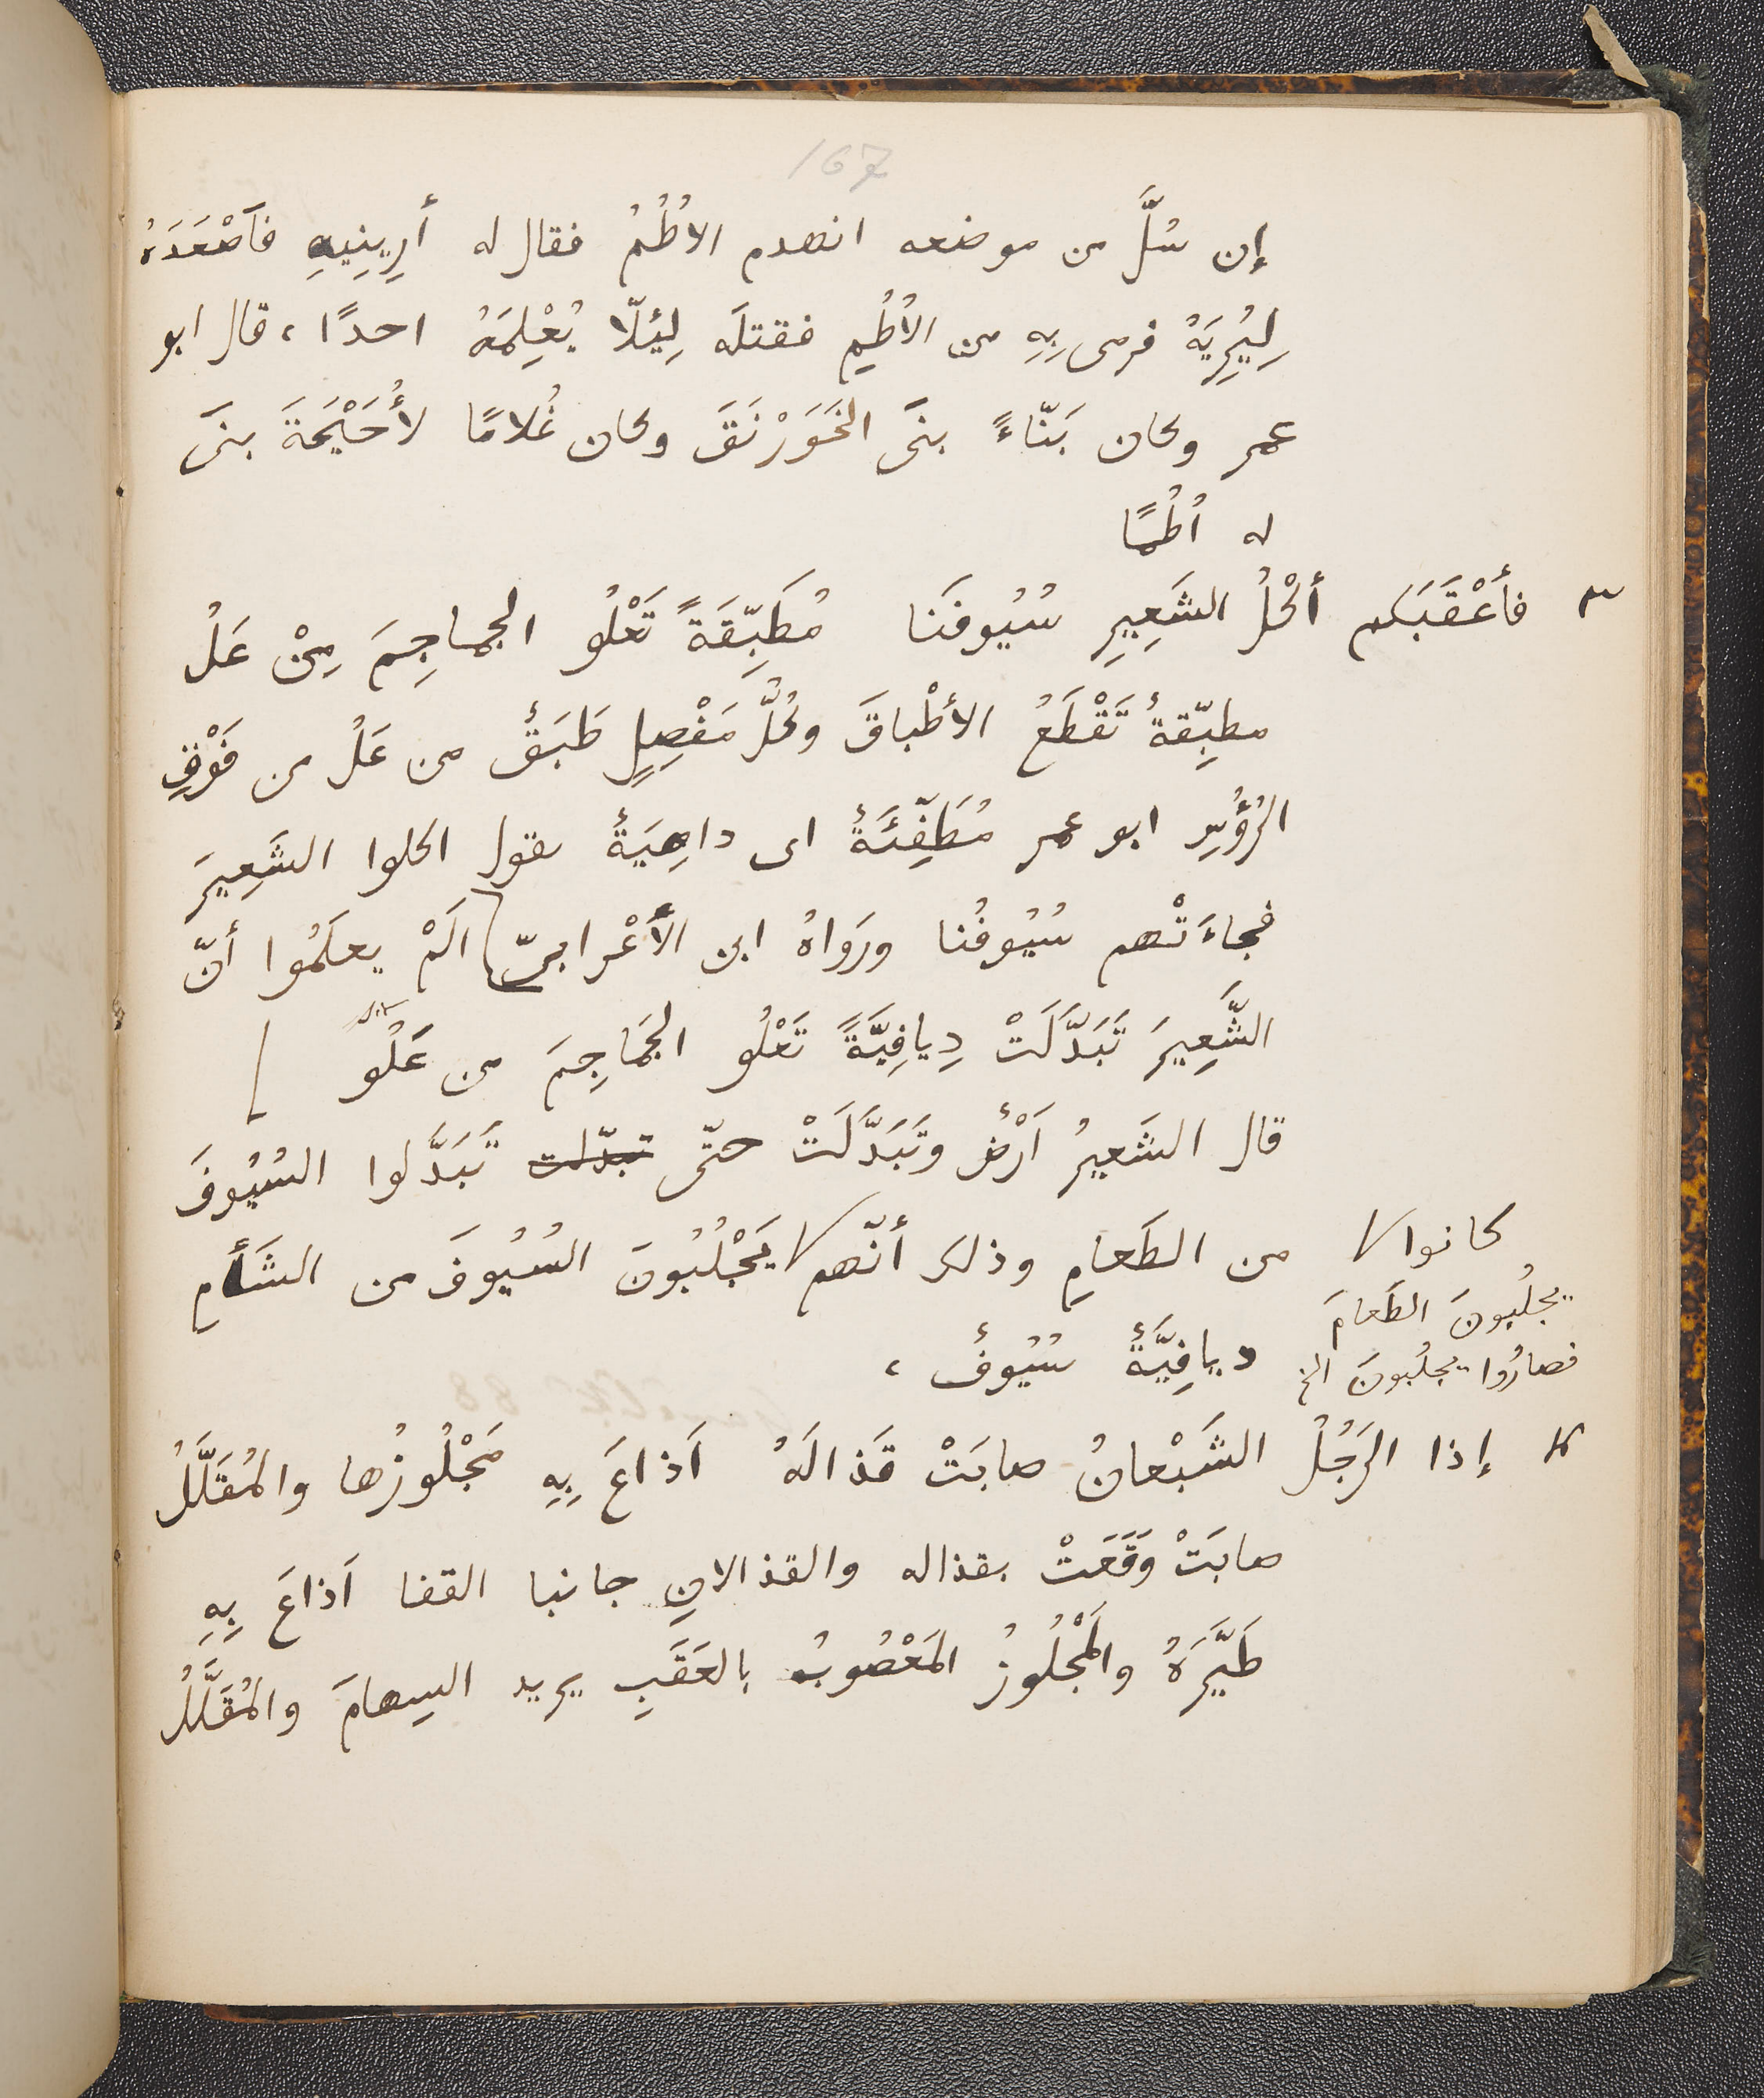 167
إن سُلَّ من موضعه انهدم الأُطُمُ فقال له أَرِينِيهِ فأَصْعَدَهُ
لِيُرِيَهُ فرمى بِهِ من الأُطُمِ فقتلَه لِئَلّا يُعْلِمَهُ احدًا، قال ابو
عمر وكان بَنّاءً بنَى الخَوَرْنَقَ وكان غُلامًا لأُحَيْحَةَ بنَى
له أُطُمًا
٣ فأَعْقَبَكم أَكْلُ الشَعِيرِ سُيُوفَنَا مُطَبِّقَةً تَعْلُو الجماجِمَ مِنْ عَلُ
مطبِّقةٌ تَقْطَعُ الأطْباقَ وكُلُّ مَفْصِلٍ طَبَقٌ من عَلُ من فَوْقِ
الرُؤُسِ ابو عمر مُطَفِّئَةٌ اى داهِيَةٌ يقول اكلوا الشَعِيرَ
فجاءَتْهم سُيُوفُنا ورَوَاهُ ابن الأَعْرابىّ أَلَمْ يعلَمُوا أنّ
الشَّعِيرَ تَبَدَّلَتْ دِيافِيَّةً تَعْلُو الجَمَاجِمَ من عَلُو
قال الشَعيرُ اَرْضٌ وتَبَدَّلَتْ حتّى تبدّلت تَبَدَّلوا السُيُوفَ
من الطَعامِ وذلك أنّهم يَجْلُبُونَ السُيُوفَ من الشَأْمِ
كانوا
يجلُبونَ الطَعامَ
فصارُوا يجلُبونَ الخ
ديافِيَّةٌ سُيُوفٌ،
٤ إذا الرَجُلُ الشَبْعانُ صابَتْ قَذالَهُ اَذاعَ بِهِ مَجْلُوزُها والمُقَلَّلُ
صابَتْ وَقَعَتْ بقذاله والقذالانِ جانبا القفا اَذاعَ بِهِ
طَيَّرَهُ والمَجْلُوزُ المَعْصُوبُ بالعَقَبِ يريد السِهامَ والمُقَلَّلُ